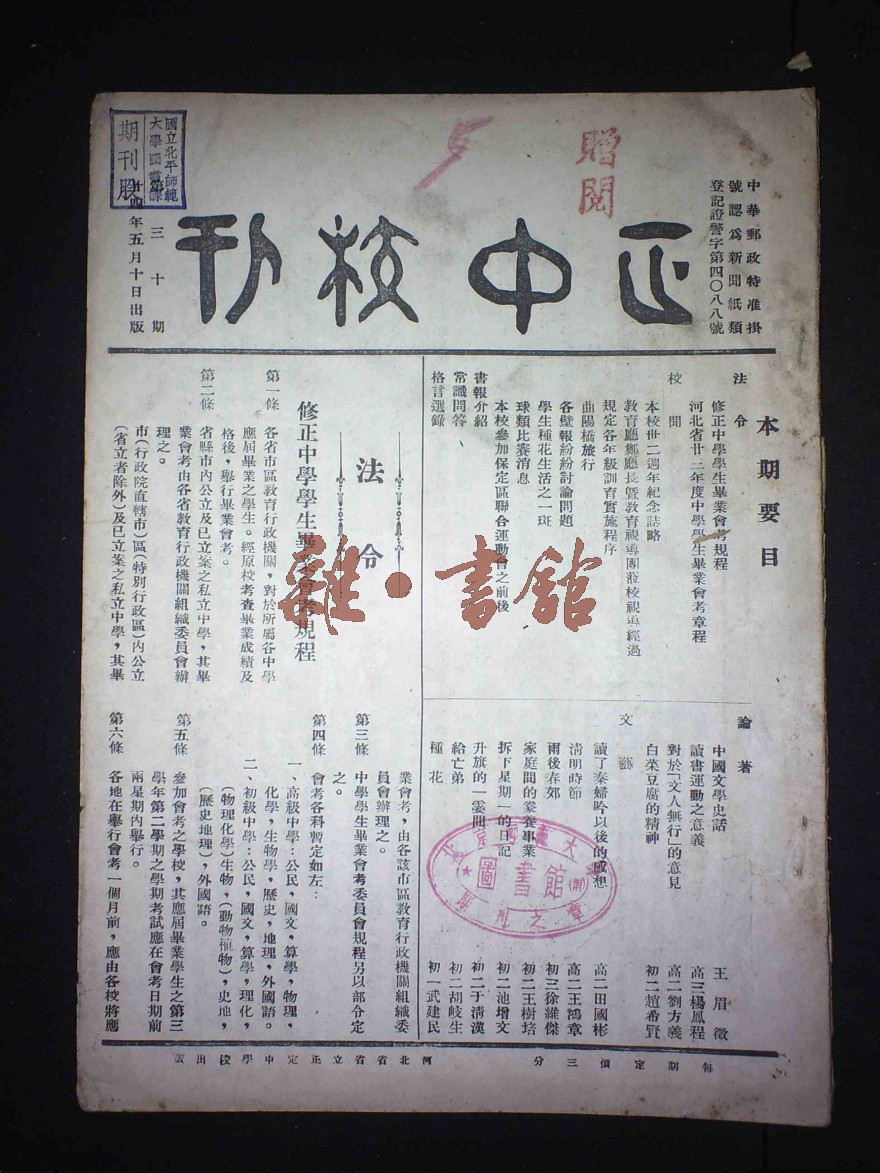 中華郵政特准掛
號認為新聞紙類
登記證警字第四〇八八號
贈閱
正中校刊
第三十期
廿四年五月十日出版
國立北平師範
大學圖書課
期刊股
本期要目
法令
修正中學學生畢業會考規程
河北省廿三年度中學學生畢業會考章程
校聞
本校卅二週年紀念誌略
教育廳鄭廳長暨教育視導團蒞校視導經過
規定各年級訓育實施程序
曲陽橋旅行
各壁報紛紛討論問題
學生種花生活之一斑
球類比賽消息
本校參加保定區聯合運動會之前後
書報介紹
常識問答
格言選錄
論著
中國文學史話 王眉徵
讀書運動之意義 高三楊鳳程
對於「文人無行」的意見 高二劉方義
白菜豆腐的精神 初二趙希賢
文藝
讀了秦婦吟以後的感想 高二田國彬
清明時節 高二王鴻章
雨後春郊 初三徐維傑
家庭間的豢養事業 初二王樹培
拆下星期一的日記 初二池增文
升旗的一霎間 初二于清漢
給亡弟 初二胡岐生
種花 初一武建民
法令
修正中學學生畢業會考規程
第一條 各省市區教育行政機關,對於所屬各中學
應屆畢業之學生。經原校考查畢業成績及
格後,舉行畢業會考。
第二條 省縣市內公立及已立案之私立中學,其畢
業會考由各省教育行政機關組織委員會辦
理之。
市(行政院直轄市)區(特別行政區)內公立
(省立者除外)及已立案之私立中學,其畢
業會考,由各該市區教育行政機關組織委
員會辦理之。
第三條 中學學生畢業會考委員會規程另以部令定
之。
第四條 會考各科暫定如左:
一、高級中學:公民,國文,算學,物理,
化學,生物學,歷史,地理,外國語。
二、初級中學:公民,國文,算學,理化,
(物理化學)生物,(動物植物),史地,
(歷史地理),外國語。
第五條 參加會考之學校,其應屆畢業學生之第三
學年第二學期之學期考試應在會考日期前
兩星期內舉行。
第六條 各地在舉行會考一個月前,應由各校將應
每期定價三分
河北省省立正定中學校出版
雜·書館
圖書館